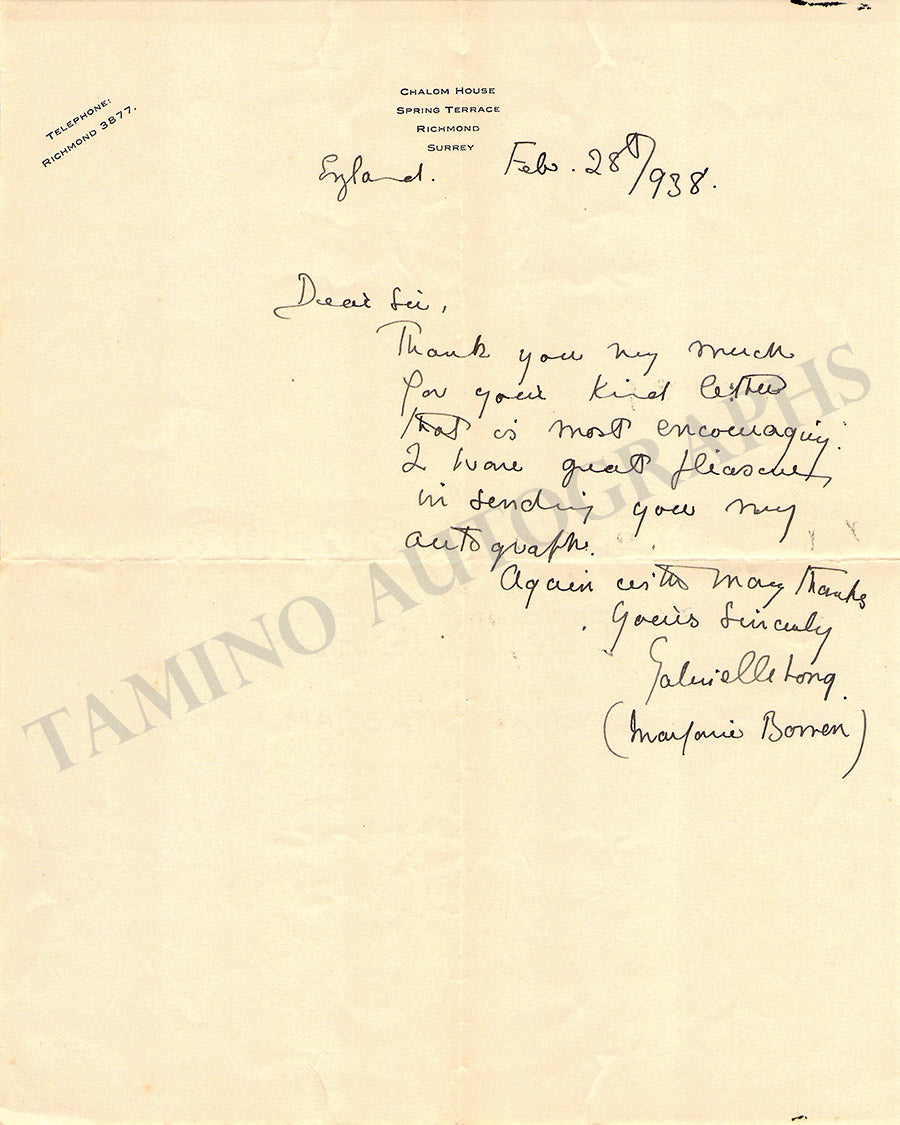 TELEPHONE:
RICHMOND 3877.
CHALOM HOUSE
SPRING TERRACE
RICHMOND
SURREY
England. Feb. 28th/938.
Dear Sir,
Thank you very much
for your kind letter
that is most encouraging.
I have great pleasure
in sending you my
autograph.
Again with many thanks
Yours Sincerely
Gabrielle Long.
(Marjorie Bowen)
TAMINO AUTOGRAPHS